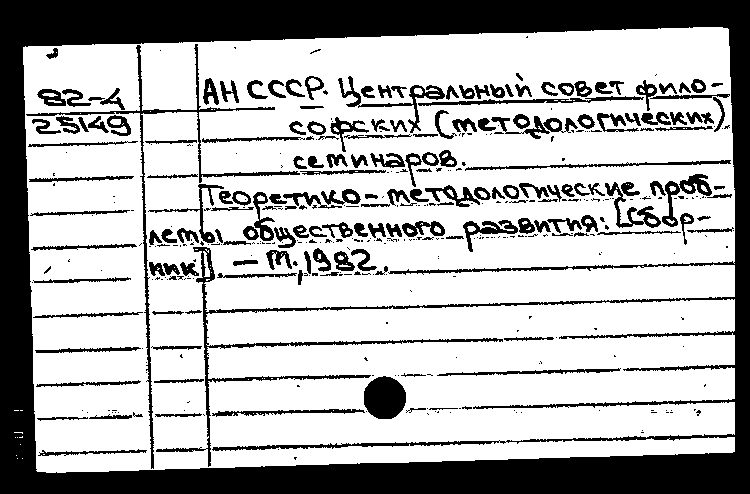 82-4
25149
АН СССР. Центральный совет фило-
софских (методологических)
семинаров.
Теоретико-методологические проб-
лемы общественного развития: [Сбор-
ник]. - М., 1982.